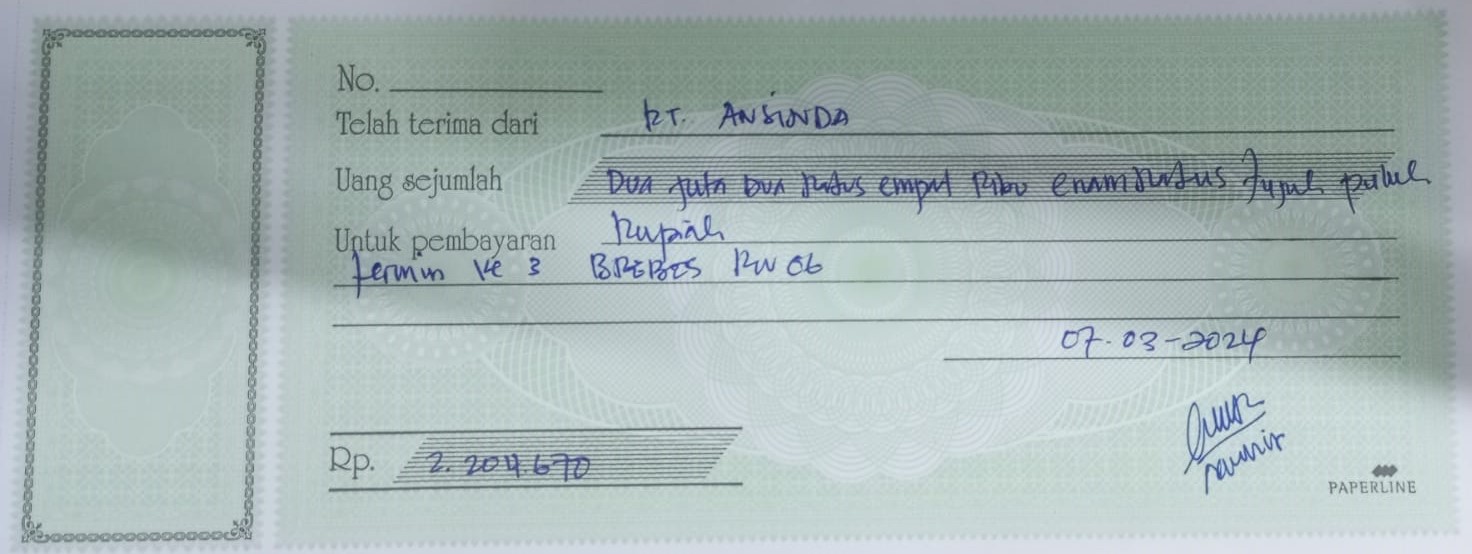 No.
Telah terima dari PT. ANSINDA
Uang sejumlah Dua juta Dua Ratus empat Ribu enam Ratus Tujuh puluh
Untuk pembayaran Rupiah
termin ke 3 BREBES RW 06
07-03-2024
Rp. 2.204.670
PAPERLINE